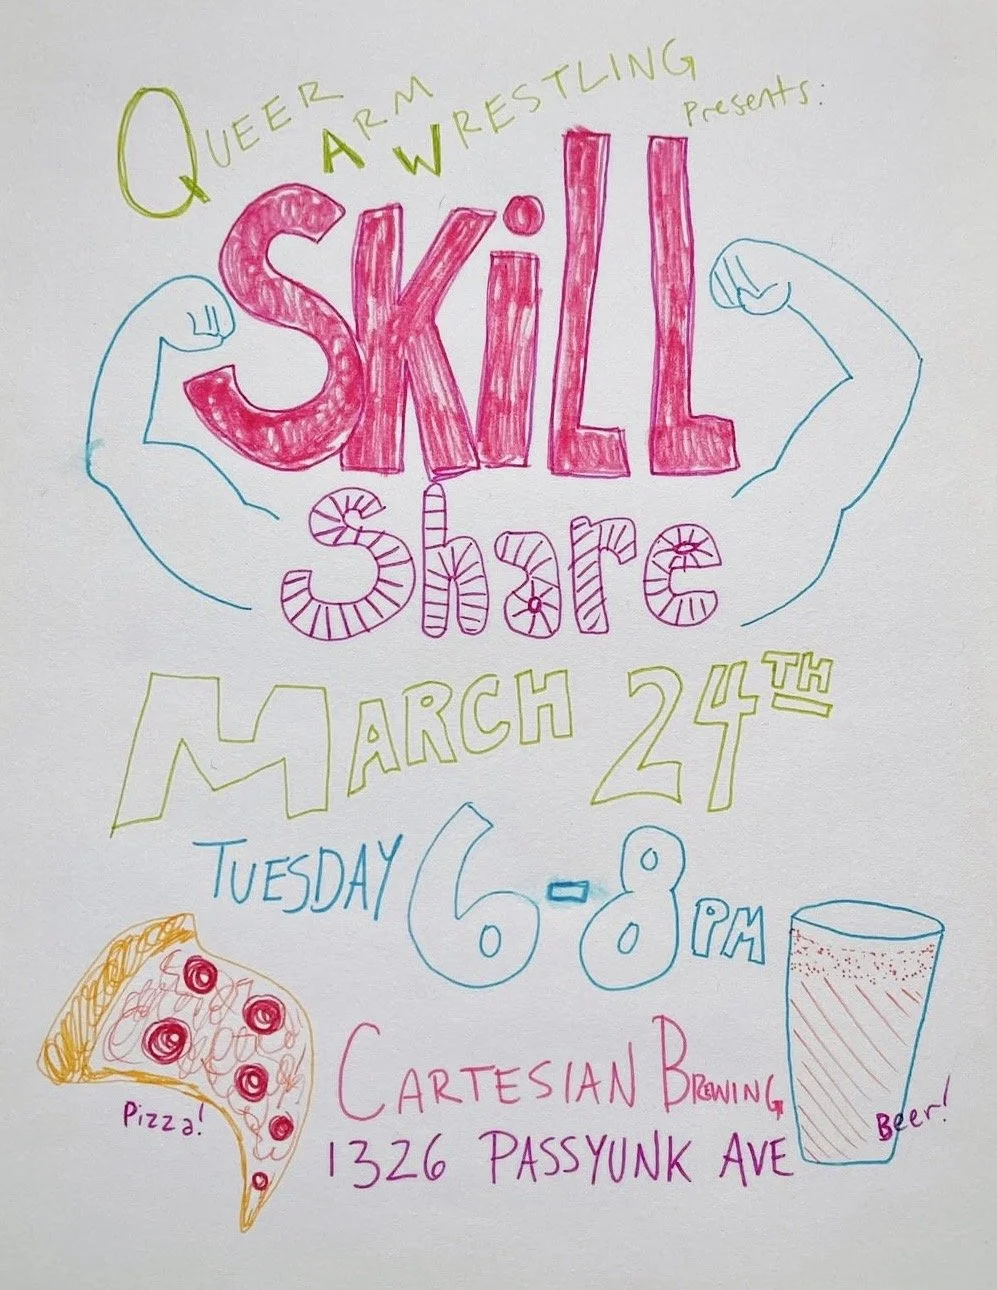 QUEER ARM WRESTLING
Presents:
SKiLL
Share
MARCH 24TH
TUESDAY 6-8PM
Pizza!
CARTESIAN BREWING
1326 PASSYUNK AVE
Beer!